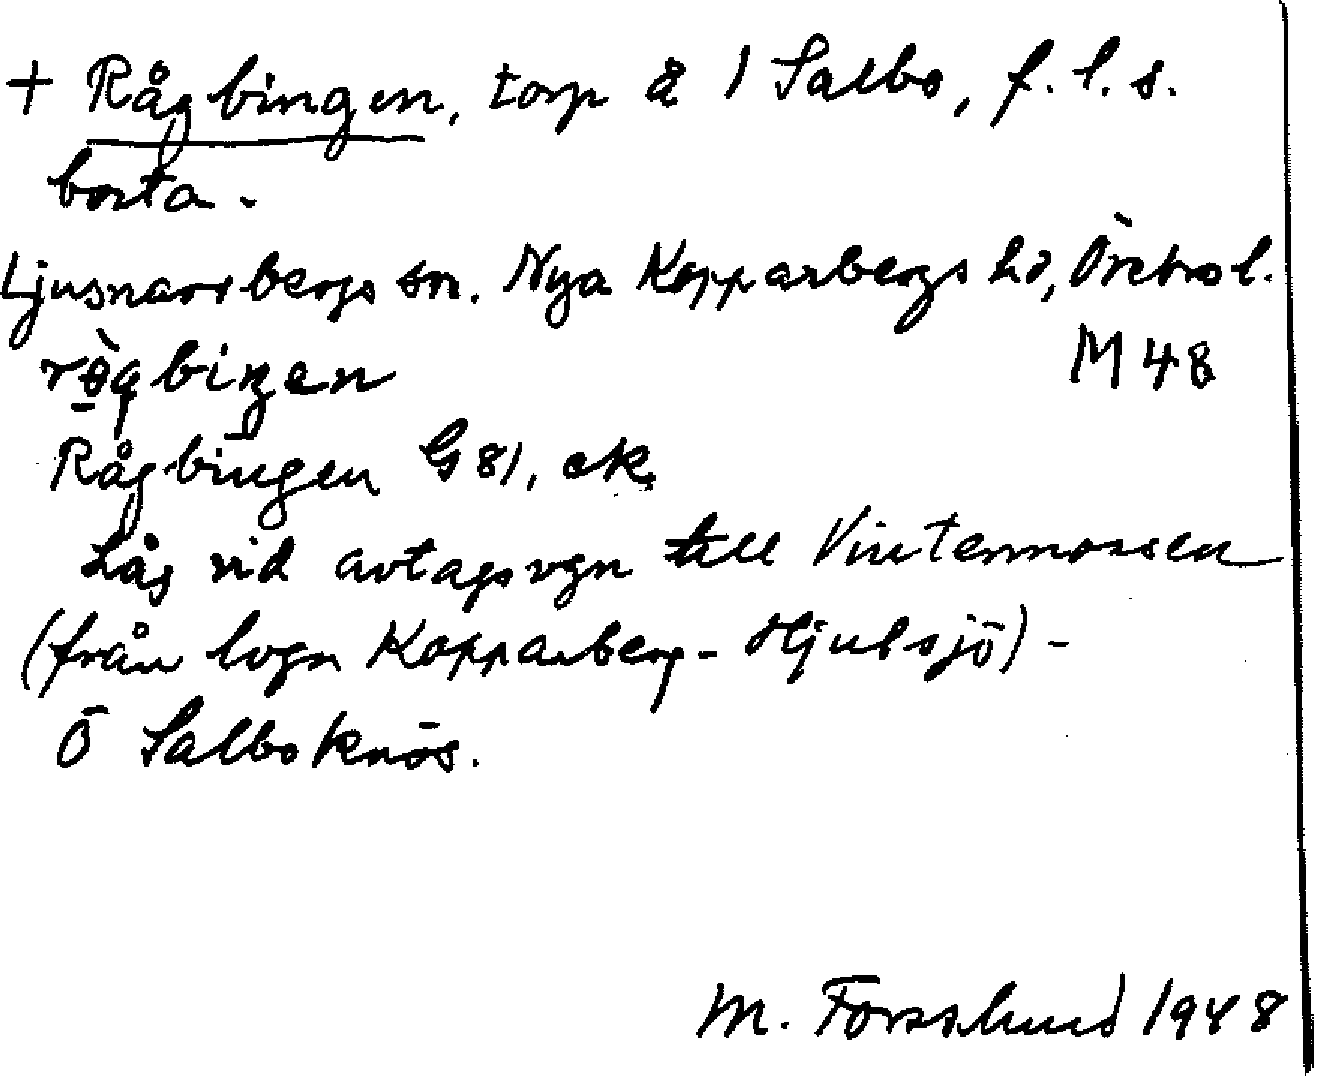 + Rågbingen, torp å 1 Salbo, f.l.s.
borta.
Ljusnarsbergs sn. Nya Kopparbergs hd, Örebro l.
M 48
Rågbingen G 81, ek.
Låg vid avtagsvgn till Vintermossen
(från lvgn Kopparberg - Hjulsjö) -
Ö Salboknös.
M. Forsslund 1948